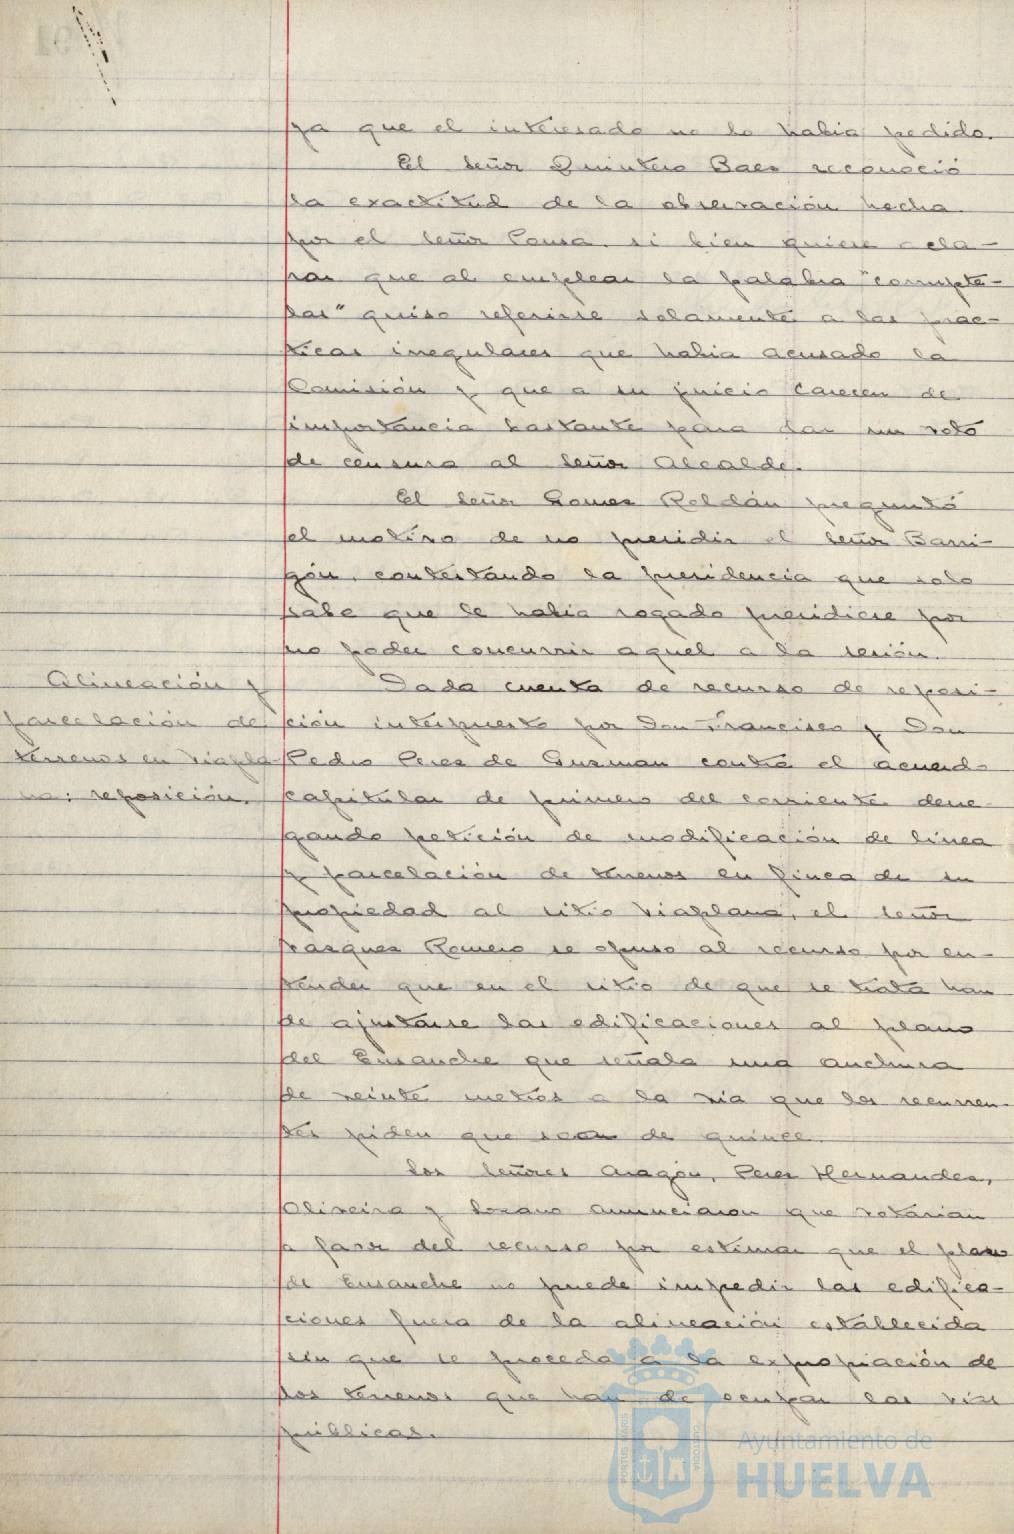 ya que el interesado no lo habia pedido.
El señor Quintero Baez reconoció
la exactitud de la observación hecha
por el señor Pousa, si bien quiere acla-
rar que al emplear la palabra "corrupte-
las" quiso referirse solamente a las prac-
ticas irregulares que habia acusado la
Comisión y que a su juicio carecen de
importancia bastante para dar un voto
de censura al señor Alcalde.
El señor Gomez Roldán preguntó
el motivo de no presidir el señor Barri-
gón, contestando la presidencia que solo
sabe que le habia rogado presidiese por
no poder concurrir aquel a la sesión.
Alineación y
parcelación de
terrenos en Viapla-
na: reposición.
Dada cuenta de recurso de reposi-
ción interpuesto por Don Francisco y Don
Pedro Perez de Guzman contra el acuerdo
capitular de primero del corriente dene-
gando petición de modificación de linea
y parcelación de terrenos en finca de su
propiedad al sitio Viaplana, el señor
Vazquez Romero se opuso al recurso por en-
tender que en el sitio de que se trata han
de ajustarse las edificaciones al plano
del Ensanche que señala una anchura
de veinte metros a la via que los recurren-
tes piden que sean de quince.
Los señores Aragón, Perez Hernandez,
Oliveira y Lozano anunciaron que votarian
a favor del recurso por estimar que el plano
de Ensanche no puede impedir las edifica-
ciones fuera de la alineación establecida
sin que se proceda a la expropiación de
los terrenos que han de ocupar las vias
públicas.
PORTUS MARIS
CUSTODIA
Ayuntamiento de
HUELVA